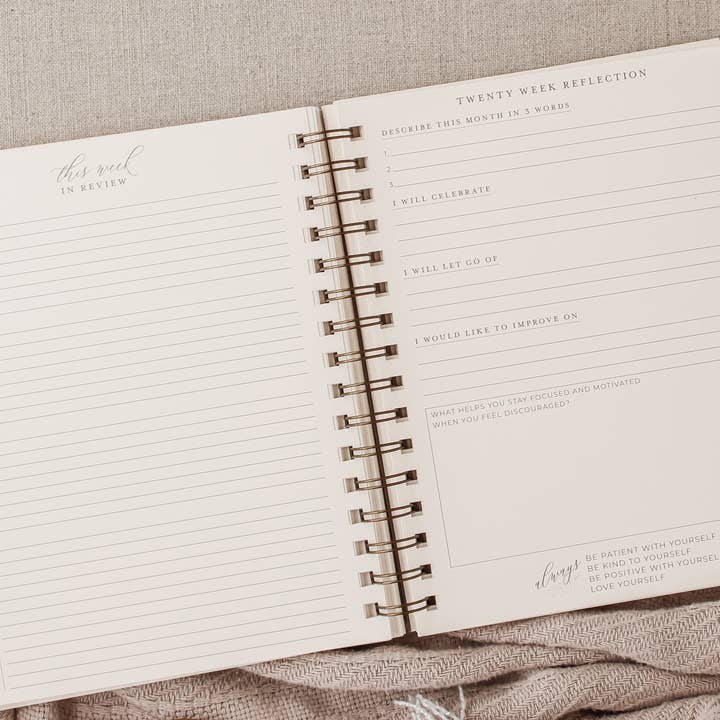 this week
IN REVIEW
TWENTY WEEK REFLECTION
DESCRIBE THIS MONTH IN 3 WORDS
1.
2.
3.
I WILL CELEBRATE
I WILL LET GO OF
I WOULD LIKE TO IMPROVE ON
WHAT HELPS YOU STAY FOCUSED AND MOTIVATED
WHEN YOU FEEL DISCOURAGED?
always
BE PATIENT WITH YOURSELF
BE KIND TO YOURSELF
BE POSITIVE WITH YOURSELF
LOVE YOURSELF